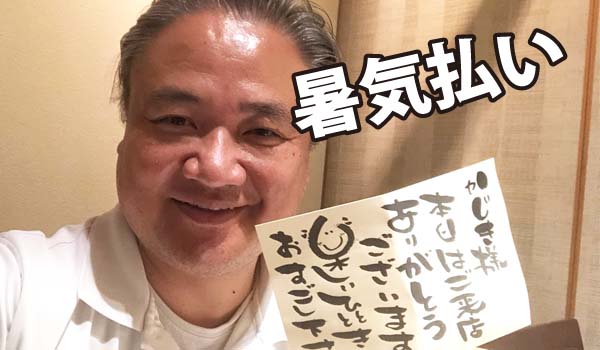 暑気払い
かじき様
本日はご来店
ありがとう
ございます
楽しいひととき
おすごし下さ